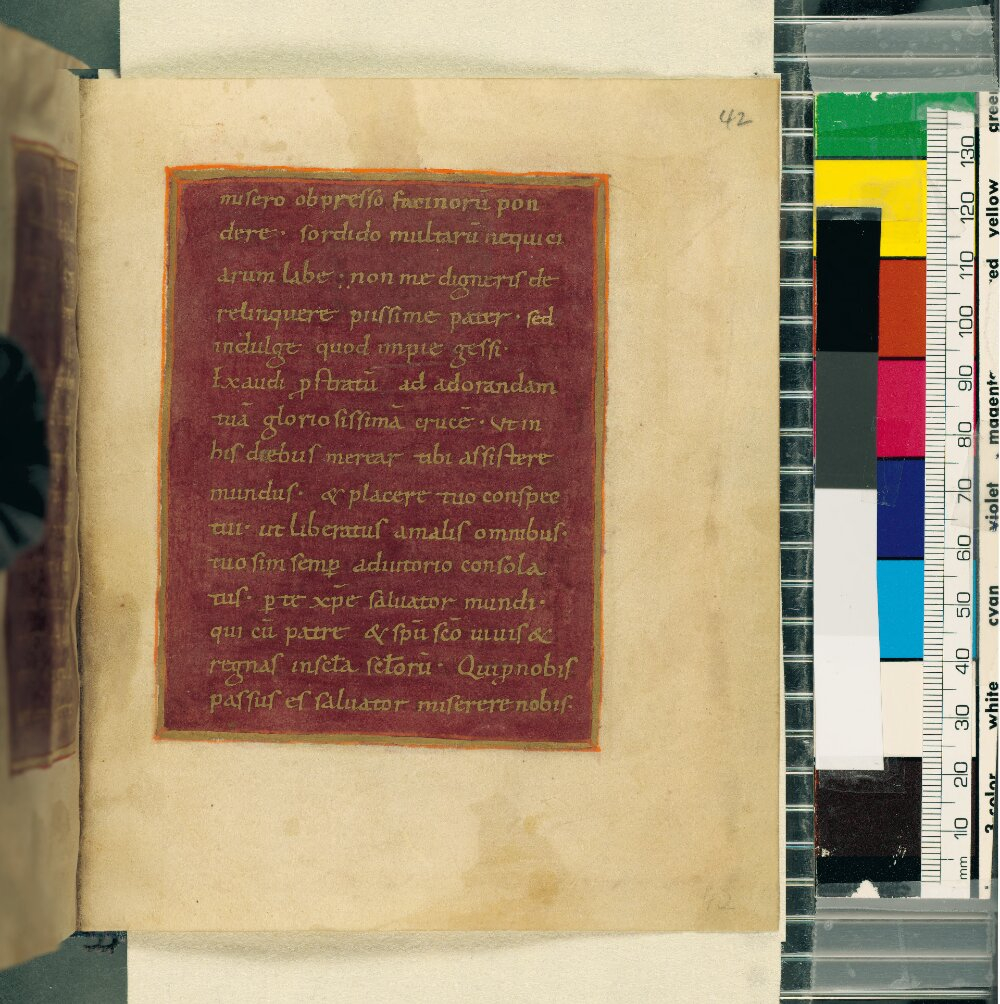 42
misero obpresso facinorū pon
dere· sordido multarū nequici
arum labe· non me digneris de
relinquere piissime pater· sed
indulge quod impie gessi·
Exaudi ꝓstratū ad adorandam
tuā gloriosissimā crucē· ut in
his diebus merear tibi assistere
mundus· & placere tuo conspec
tui· ut liberatus amalis omnibus·
tuo sim semꝑ adiutorio consola
tus· ꝑ te xp̄e saluator mundi·
qui cū patre & sp̄u sc̄o uiuis &
regnas in sc̄ła sc̄łorū· Qui ꝓ nobis
passus es saluator miserere nobis·
130
120
110
100
90
80
70
60
50
40
30
20
10
mm
yellow
magenta
violet
cyan
white
3-color